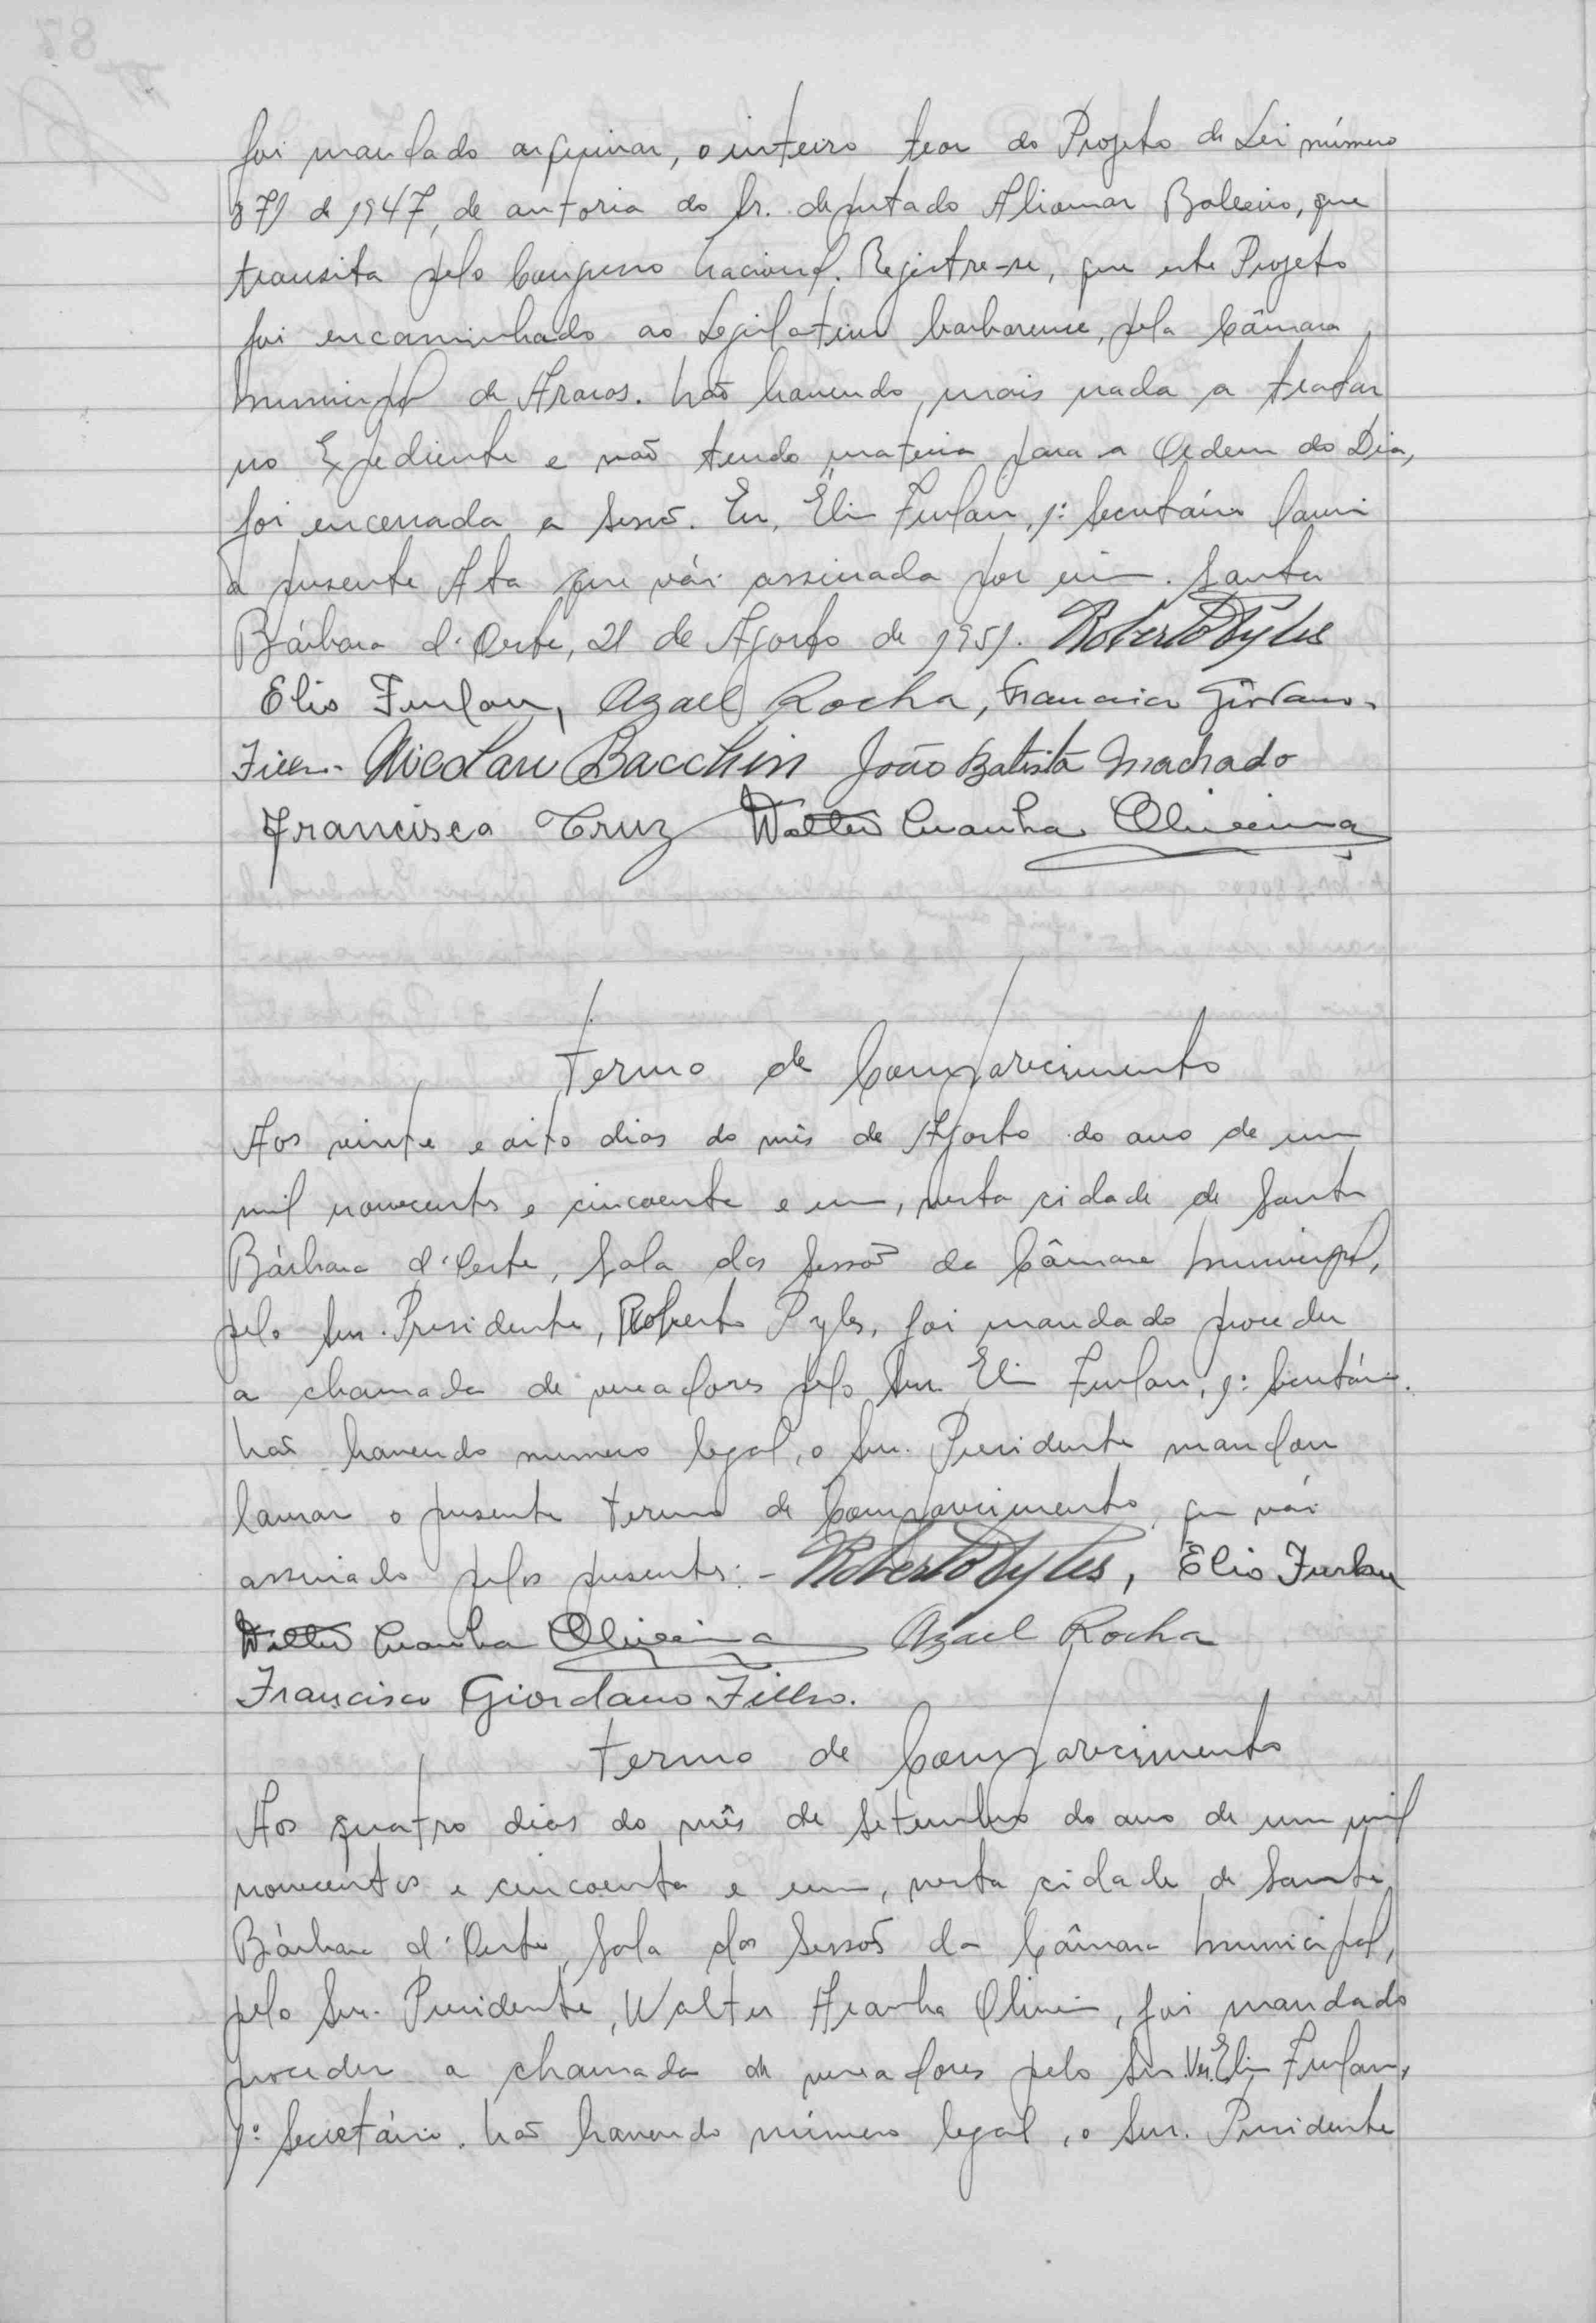 foi mandado arquivar, o inteiro teor do Projeto de Lei número
871 de 1947, de autoria do Sr. deputado Aliomar Baleeiro, que
transita pelo Congresso Nacional. Registre-se, que este Projeto
foi encaminhado ao Legislativo barbarense, pela Câmara
Municipal de Araras. Não havendo mais nada a tratar
no Expediente e não tendo materia para a Ordem do Dia,
foi encerrada a sessão. Eu, Élio Furlan, 1º Secretário lavrei
a presente Ata que vái assinada por mim. Santa
Bárbara d'Oeste, 21 de Agosto de 1951. Roberto Pyles
Elio Furlan, Azael Rocha, Francisco Giordano
Filho. Nicolau Bacchin João Batista Machado
Francisco Cruz Walter Aranha Oliveira
Termo de Comparecimento
Aos vinte e oito dias do mês de Agosto do ano de um
mil novecentos e cincoenta e um, nesta cidade de Santa
Bárbara d'Oeste, Sala das Sessões da Câmara Municipal,
pelo Snr. Presidente, Roberto Pyles, foi mandado proceder
a chamada de vereadores pelo Snr. Elio Furlan, 1º Secretário.
Não havendo numero legal, o Snr. Presidente mandou
lavrar o presente termo de Comparecimento, que vái
assinado pelos presentes: - Roberto Pyles, Élio Furlan
Walter Aranha Oliveira Azael Rocha
Francisco Giordano Filho.
Termo de Comparecimento
Aos quatro dias do mês de Setembro do ano de um mil
novecentos e cincoenta e um, nesta cidade de Santa
Bárbara d'Oeste, Sala das Sessões da Câmara Municipal,
pelo Snr. Presidente, Walter Aranha Oliveira, foi mandado
proceder a chamada de vereadores pelo Snr. Ver. Elio Furlan,
1º Secretário. Não havendo número legal, o Snr. Presidente